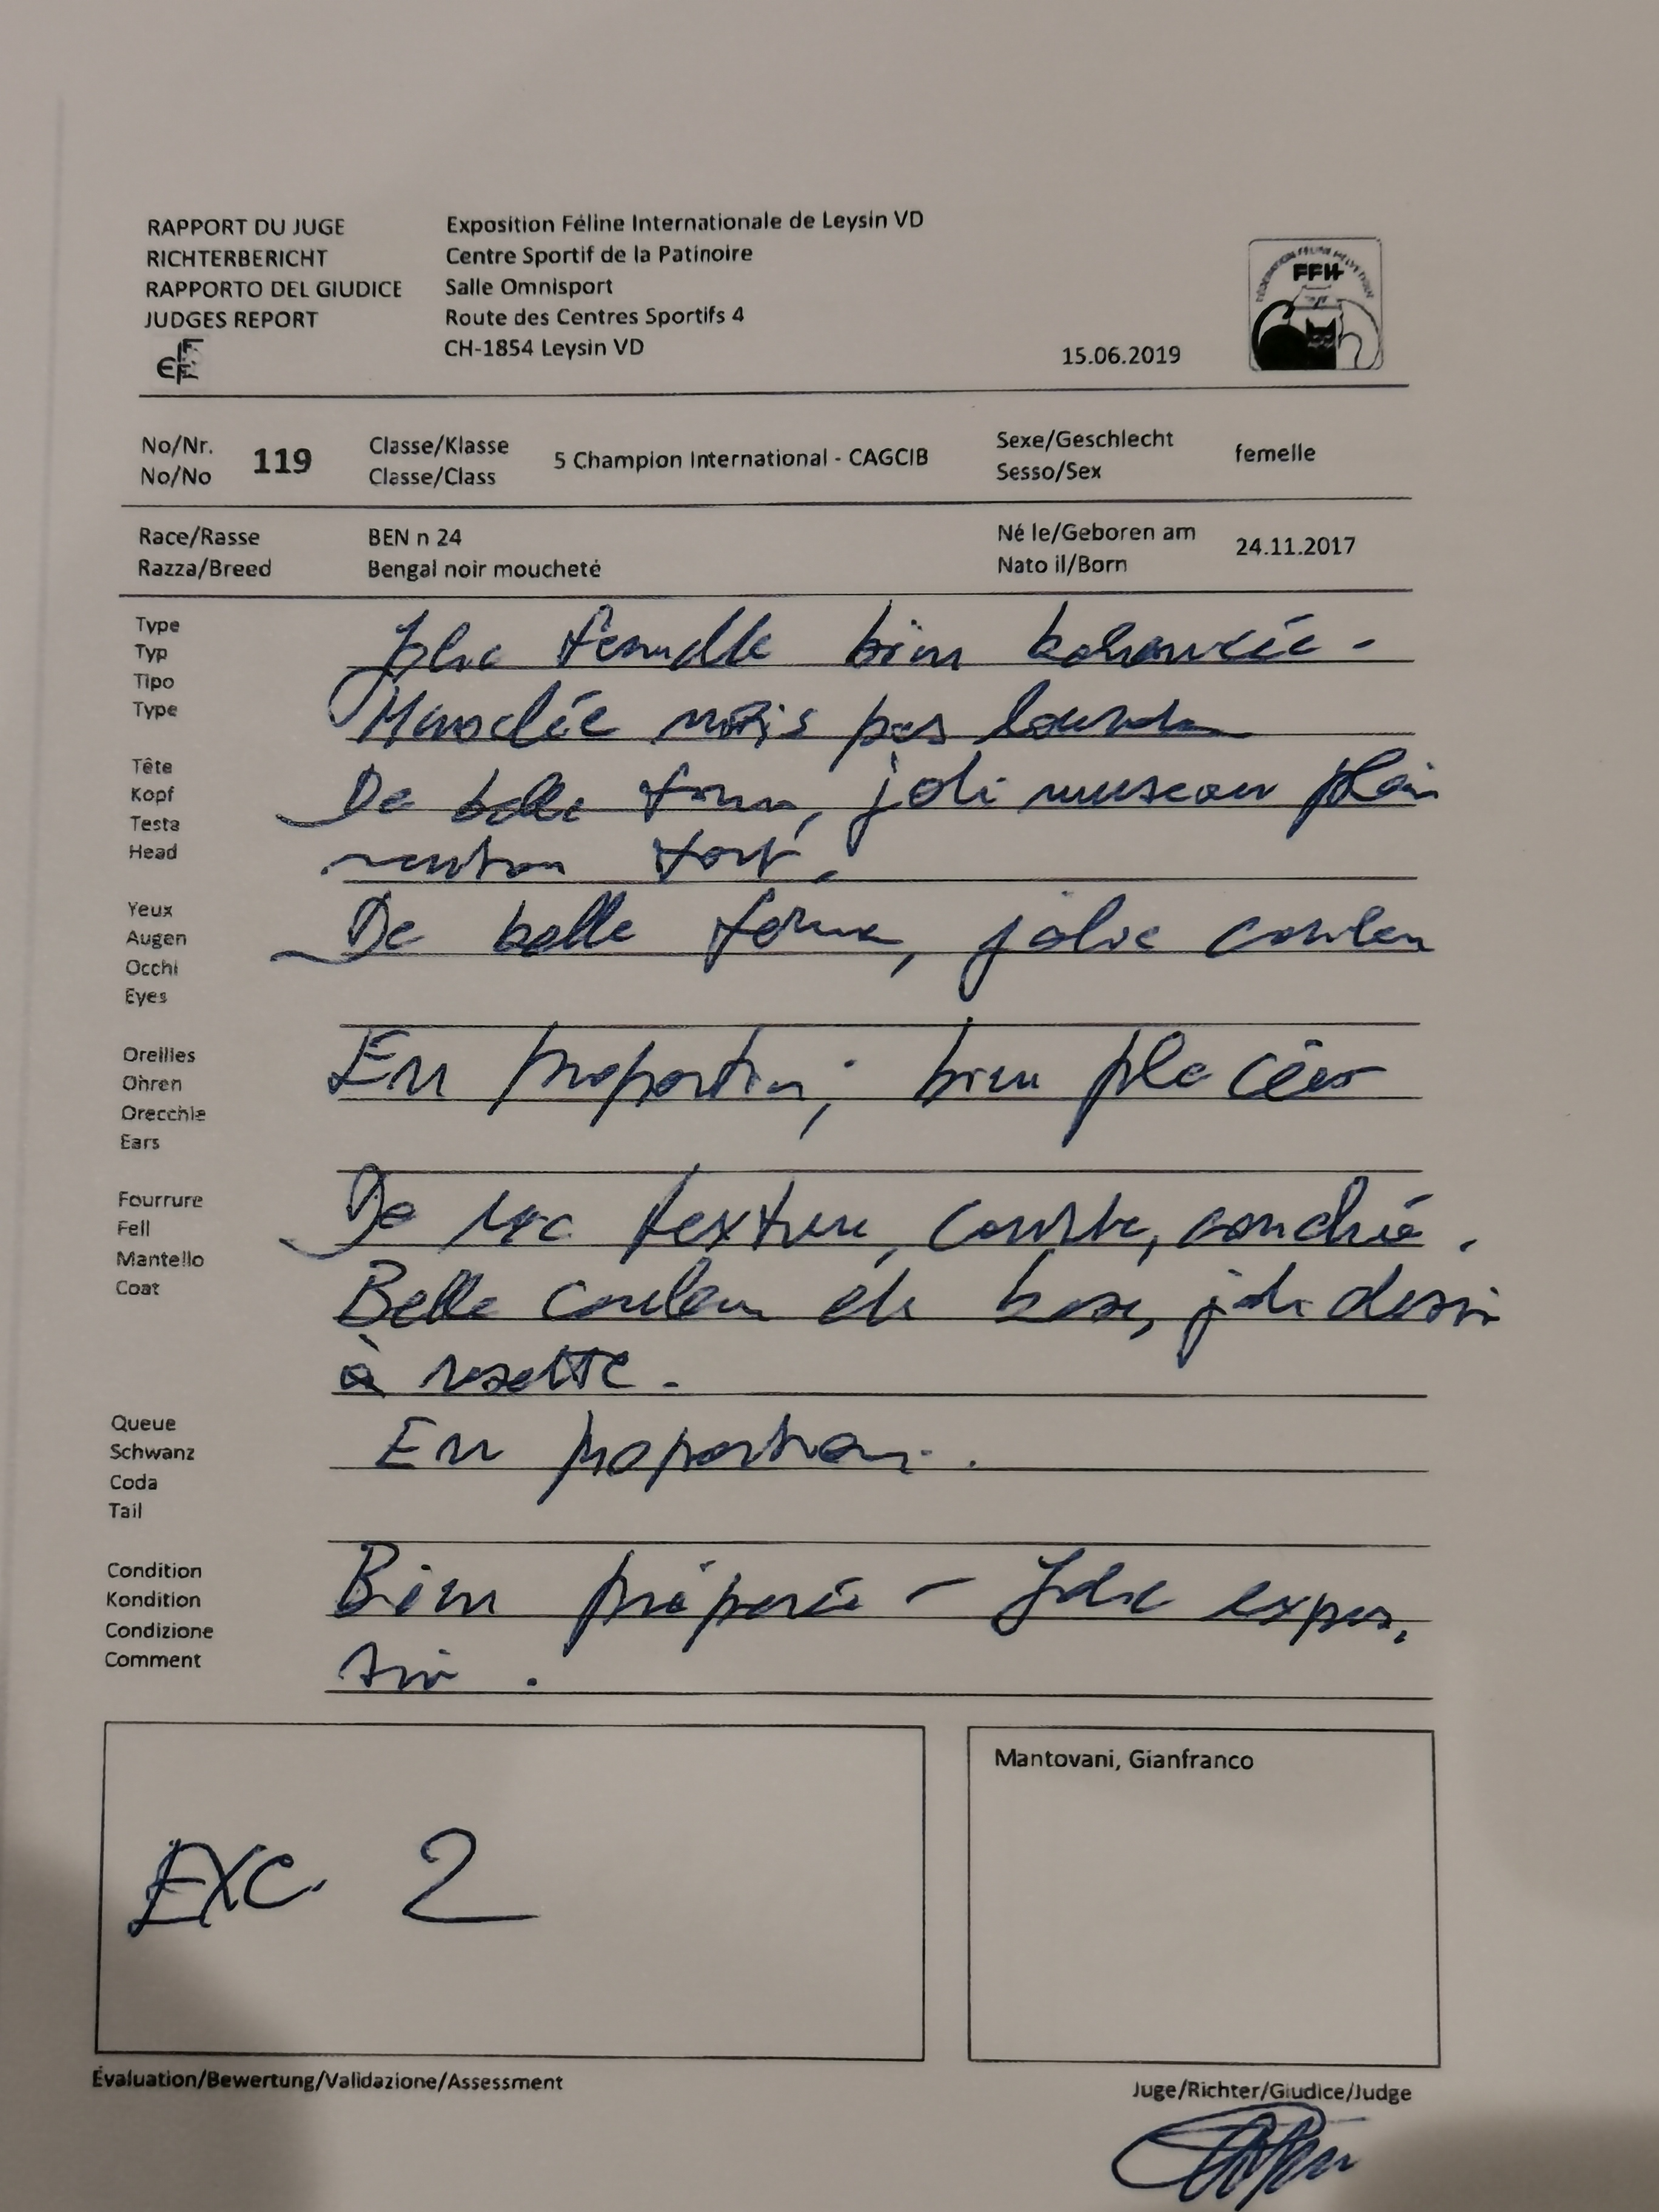 RAPPORT DU JUGE
RICHTERBERICHT
RAPPORTO DEL GIUDICE
JUDGES REPORT
Exposition Féline Internationale de Leysin VD
Centre Sportif de la Patinoire
Salle Omnisport
Route des Centres Sportifs 4
CH-1854 Leysin VD
15.06.2019
FFH
No/Nr.
No/No
119
Classe/Klasse
Classe/Class
5 Champion International - CAGCIB
Sexe/Geschlecht
Sesso/Sex
femelle
Race/Rasse
Razza/Breed
BEN n 24
Bengal noir moucheté
Né le/Geboren am
Nato il/Born
24.11.2017
Type
Typ
Tipo
Type
Jolie femelle bien balancée -
Musclée mais pas lourde
Tête
Kopf
Testa
Head
De belle forme, joli museau plein
menton fort.
Yeux
Augen
Occhi
Eyes
De belle forme, jolie couleur
Oreilles
Ohren
Orecchie
Ears
En proportion, bien placées
Fourrure
Fell
Mantello
Coat
De texture, courte, couchée.
Belle couleur de base, joli dessin
à rosette.
Queue
Schwanz
Coda
Tail
En proportion.
Condition
Kondition
Condizione
Comment
Bien préparée - Jolie
EXC. 2
Mantovani, Gianfranco
Évaluation/Bewertung/Validazione/Assessment
Juge/Richter/Giudice/Judge